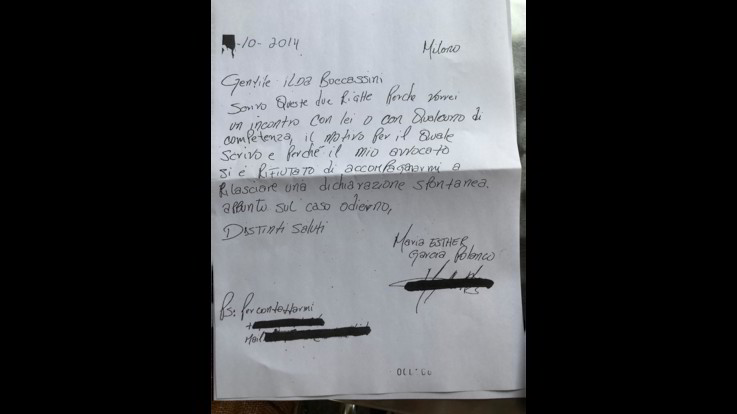 -10-2014 Milano
Gentile ilDa Boccassini
Scrivo Queste due Righe Perche vorrei
un incontro con lei o con Qualcuno di
competenza, il motivo per il Quale
Scrivo e perché il mio avvocato
si é RiFiUTATO di accompagnarmi a
Rilasciare una dichiarazione spontanea.
appunto sul caso odierno,
Distinti Saluti
Maria ESTHER
Garcia Polanco
Ps: Per contettarmi
Mail